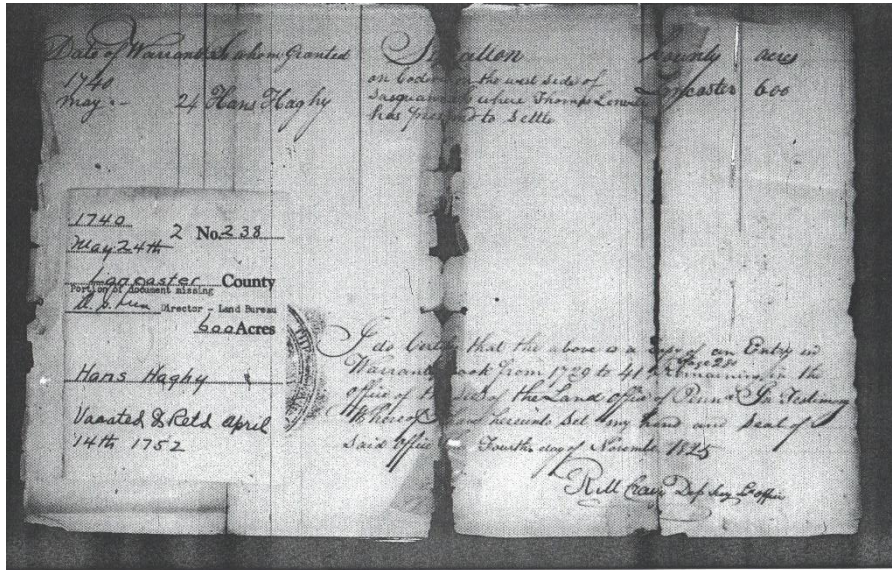 Date of Warrant To whom Granted Situation County acres
1740
May - 24 Hans Haghy on Codorus on the west side of Lancaster 600
Sasquannah where Thomas
has presumed to settle
1740 2 No. 238
May 24th
Lancaster County
Portion of document missing
Director - Land Bureau
600 Acres
Hans Haghy
Vacated & Retd April
14th 1752
I do Certify that the above is a Copy of an Entry in
Warrant Book from 1739 to 41 remaining in the
office of the of the Land office of Penna In Testimony
Whereof I have hereunto set my hand and seal of
said office the Fourth day of Novembr 1825
Dep Office